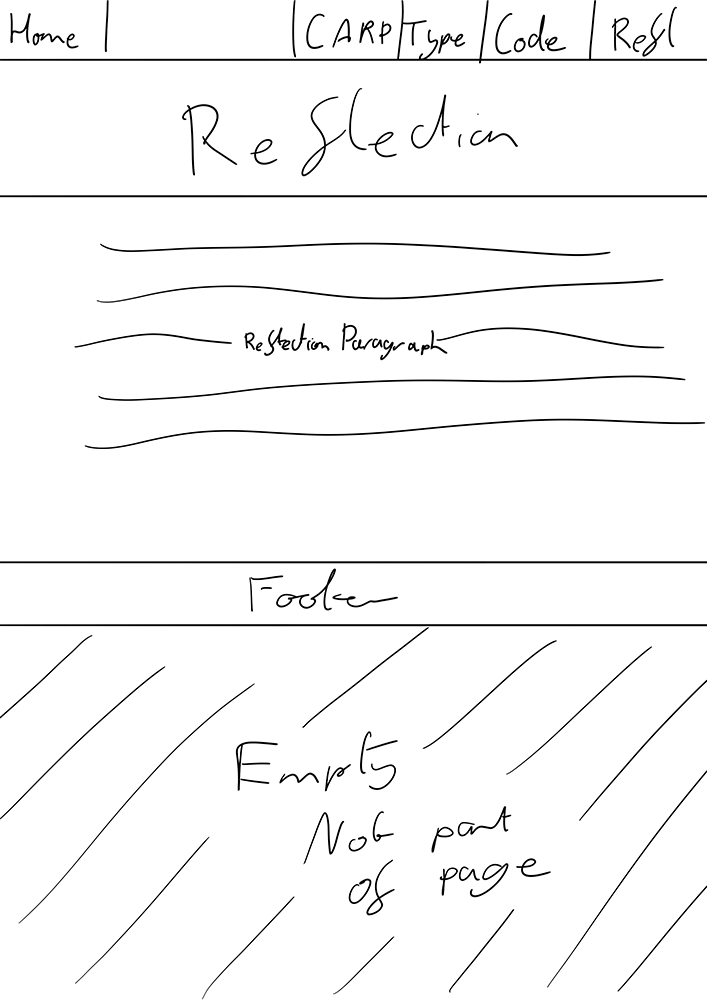 Home | CARP | Type | Code | Refl
Reflection
Reflection Paragraph
Footer
Empty
Not part
of page